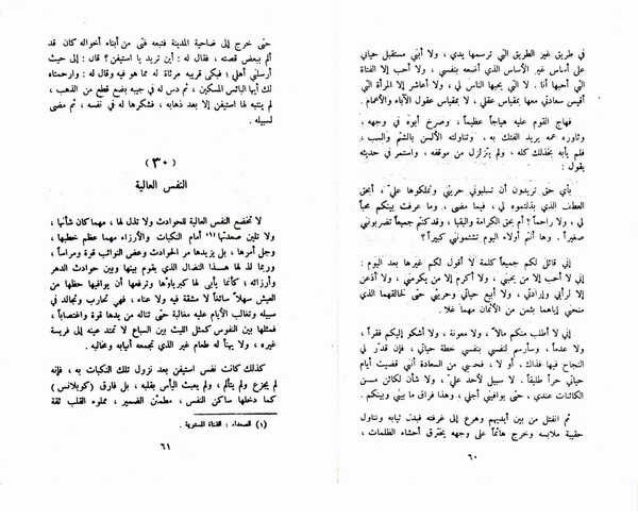 في طريق غير الطريق التي ترسمها يدي ، ولا أبني مستقبل حياتي
على أساس غير الأساس الذي أضعه بنفسي ، ولا أحب إلا الفتاة
التي أحبها أنا . لا التي يحبها الناس لي ، ولا أعاشر إلا المرأة التي
أقيس سعادتي معها بمقياس عقلي ، لا بمقياس عقول الآباء والأعمام .
فهاج القوم عليه هياجاً عظيماً ، وصرخ أبوه في وجهه ،
وثاوره عمه يريد الفتك به . وتناولته الألسن بالشتم والسب ،
فلم يأبه بذلك كله ، ولم يتزلزل من موقفه ، واستمر في حديثه
يقول :
بأي حق تريدون أن تسلبوني حريتي وتملكوها عليّ ، أبحق
العطف الذي بذلتموه لي ، فيما مضى ، وما عرفت بينكم محباً
لي ، ولا راحماً ؟ أم بحق الكرامة والبقيا ، وقد كنتم جميعاً تضربونني
صغيراً . وها أنتم أولاء اليوم تشتمونني كبيراً ؟
إني قائل لكم جميعاً كلمة لا أقول لكم غيرها بعد اليوم :
إني لا أحب إلا من يحبني ، ولا أكرم إلا من يكرمني ، ولا أذعن
إلا لرأيي وإرادتي ، ولا أبيع حياتي وحريتي حتى لخالقهما الذي
منحني إياهما بثمن من الأثمان مهما غلا .
إني لا أطلب منكم مالاً ، ولا معونة ، ولا أشكو إليكم فقراً ،
ولا عدماً ، وسأرسم لنفسي بنفسي خطة حياتي ، فإن قدر لي
النجاح فيها فذاك ، أو لا ، فحسبي من السعادة أنني قضيت أيام
حياتي حراً طليقاً . لا سبيل لأحد عليّ ، ولا شأن لكائن من
الكائنات عندي ، حتى يوافيني أجلي ، وهذا فراق ما بيني وبينكم .
ثم انفتل من بين أيديهم وهرع إلى غرفته فبدل ثيابه وتناول
حقيبة ملابسه وخرج هائماً على وجهه يخترق أحشاء الظلمات ،
٦٠
حتى خرج إلى ضاحية المدينة فتبعه فتى من أبناء أخواله كان قد
ألم ببعض قصته ، فقال له : أين تريد يا استيفن ؟ قال : إلى حيث
أرسلني أهلي ؛ فبكى قريبه مرثاة له مما هو فيه وقال له : وارحمتاه
لك أيها البائس المسكين ، ثم دس له في جيبه بضع قطع من الذهب ،
لم ينتبه لها استيفن إلا بعد ذهابه ، فشكرها له في نفسه ، ثم مضى
لسبيله .
(٣٠)
النفس العالية
لا تخضع النفس العالية للحوادث ولا تذل لها ، مهما كان شأنها ،
ولا تلين صعدتها (١) أمام النكبات والأرزاء مهما عظم خطبها ،
وجل أمرها ، بل يزيدها مر الحوادث وعض النوائب قوة ومراساً ،
وربما لذ لها هذا النضال الذي يقوم بينها وبين حوادث الدهر
وأرزائه ، كأنما يأبى لها كبرياؤها وترفعها أن يوافيها حظها من
العيش سهلاً سائغاً لا مشقة فيه ولا عناء ، فهي تحارب وتجالد في
سبيله وتغالب الأيام عليه مغالبة حتى تناله من يدها قوة واغتصاباً ،
فمثلها بين النفوس كمثل الليث بين السباع لا تمتد عينه إلى فريسة
غيره ، ولا يهنأ له طعام غير الذي تجمعه أنيابه ومخالبه .
كذلك كانت نفس استيفن بعد نزول تلك النكبات به ، فإنه
لم يجزع ولم يتألم ، ولم يعبث اليأس بقلبه ، بل فارق (كوبلانس)
كما دخلها ساكن النفس ، مطمئن الضمير ، مملوء القلب ثقة
(١) الصعداء : القناة المستوية .
٦١